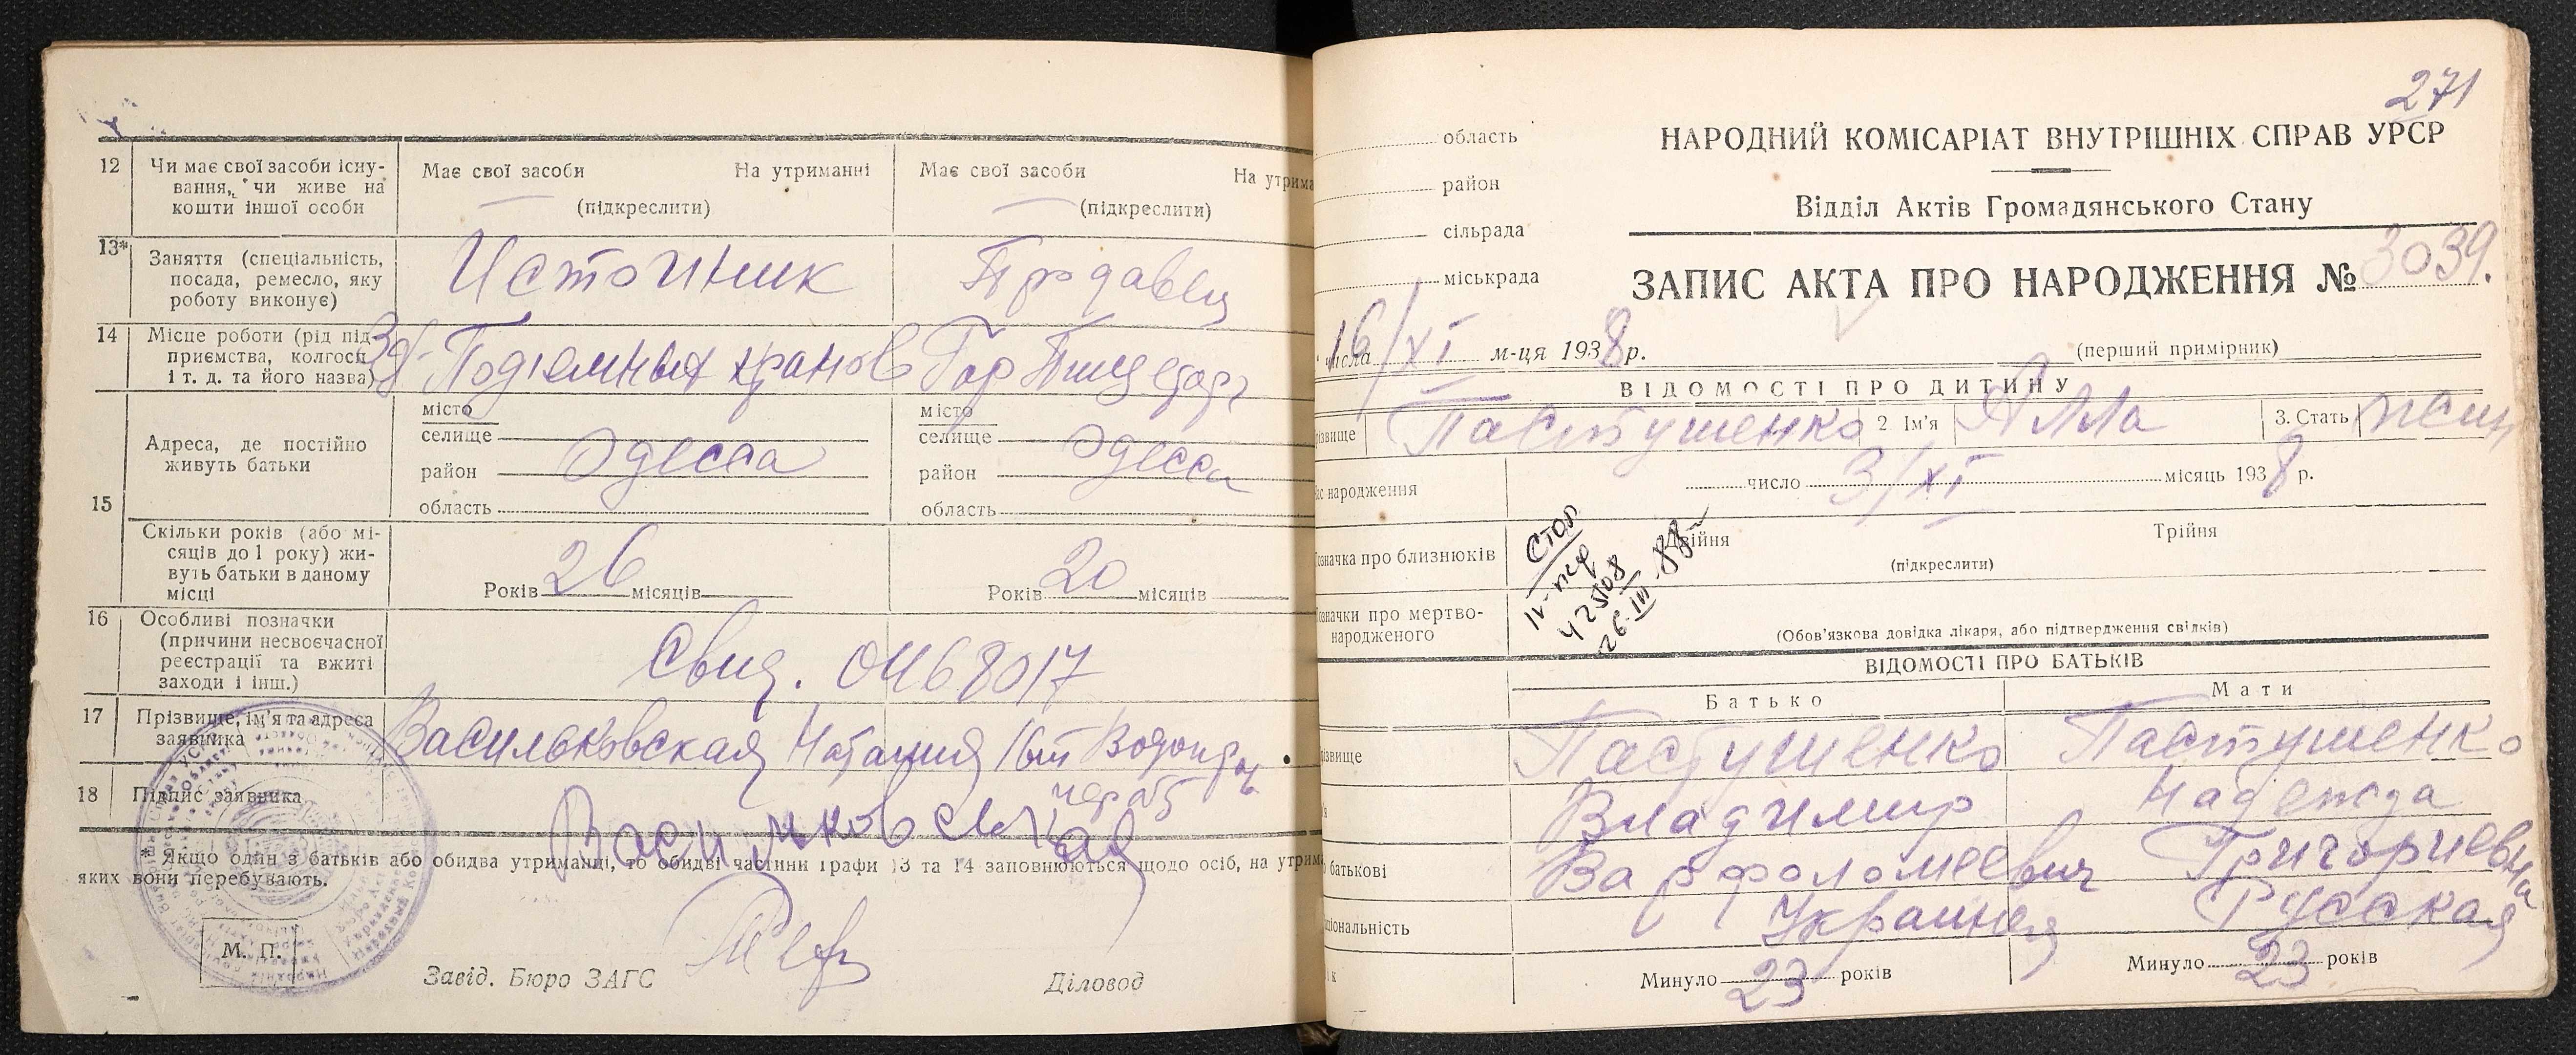 12 Чи має свої засоби існування, чи живе на кошти іншої особи
Має свої засоби На утриманні
(підкреслити)
Має свої засоби На утрима
(підкреслити)
13* Заняття (спеціальність, посада, ремесло, яку роботу виконує)
Источник
Продавец
14 Місце роботи (рід підприємства, колгосп і т. д. та його назва)
Зд Подъемных кранов
Гор Пищ
15 Адреса, де постійно живуть батьки
місто
селище
район Одесса
область
місто
селище
район Одесса
область
Скільки років (або місяців до 1 року) живуть батьки в даному місці
Років 26 місяців
Років 20 місяців
16 Особливі позначки (причини несвоєчасної реєстрації та вжиті заходи і інш.)
Свид. 0468017
17 Прізвище, ім'я та адреса заявника
Васильковская Наталия 16 ст
18 Підпис заявника
Васильковская
* Якщо один з батьків або обидва утриманці, то обидві частини графи 13 та 14 заповнюються щодо осіб, на утрим
яких вони перебувають.
М. П.
Завід. Бюро ЗАГС
Діловод
271
область
район
сільрада
міськрада
НАРОДНИЙ КОМІСАРІАТ ВНУТРІШНІХ СПРАВ УРСР
Відділ Актів Громадянського Стану
ЗАПИС АКТА ПРО НАРОДЖЕННЯ № 3039.
числа 16/XI м-ця 1938 р.
(перший примірник)
ВІДОМОСТІ ПРО ДИТИНУ
ізвище Пастушенко 2. Ім'я Алла 3. Стать жен
ас народження число 3/XI місяць 1938 р.
означка про близнюків Двійня Трійня
(підкреслити)
означки про мертвонародженого
(Обов'язкова довідка лікаря, або підтвердження свідків)
26-III-88
ВІДОМОСТІ ПРО БАТЬКІВ
Батько Мати
ізвище Пастушенко Пастушенко
Владимир Надежда
батькові Варфоломеевич Григориевна
ціональність Украинец Русская
к Минуло 23 років Минуло 23 років